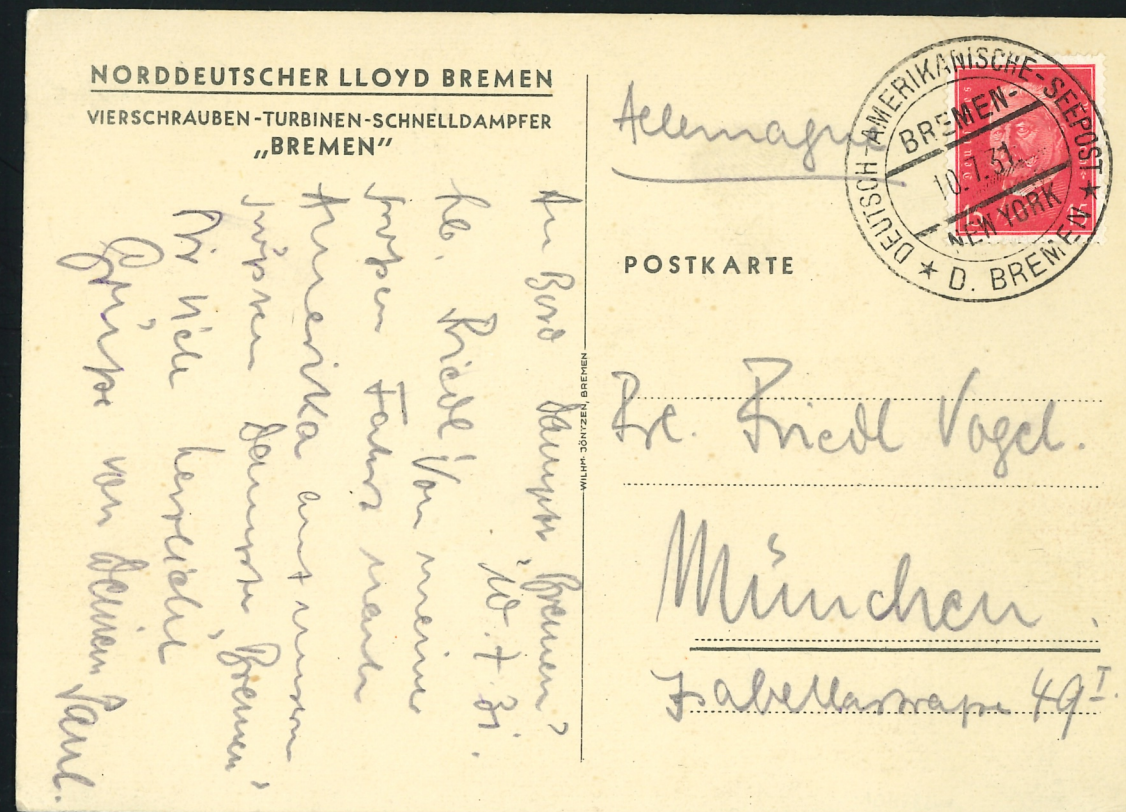 NORDDEUTSCHER LLOYD BREMEN
VIERSCHRAUBEN-TURBINEN-SCHNELLDAMPFER
„BREMEN”
An Bord Dampfer „Bremen”
10.7.31.
Lb. Friedl! Von meiner
großen Fahrt nach
Amerika auf unserm
Dampfer „Bremen”
Dir viele herzliche
Grüße von Deinem Paul.
WILHM. JÖNTZEN, BREMEN
Allemagne
DEUTSCH-AMERIKANISCHE-SEEPOST
BREMEN-
10.7.31.
NEW YORK
★ D. BREMEN ★
15
POSTKARTE
Frl. Friedl Vogel.
München.
Isabellastraße 49 I.